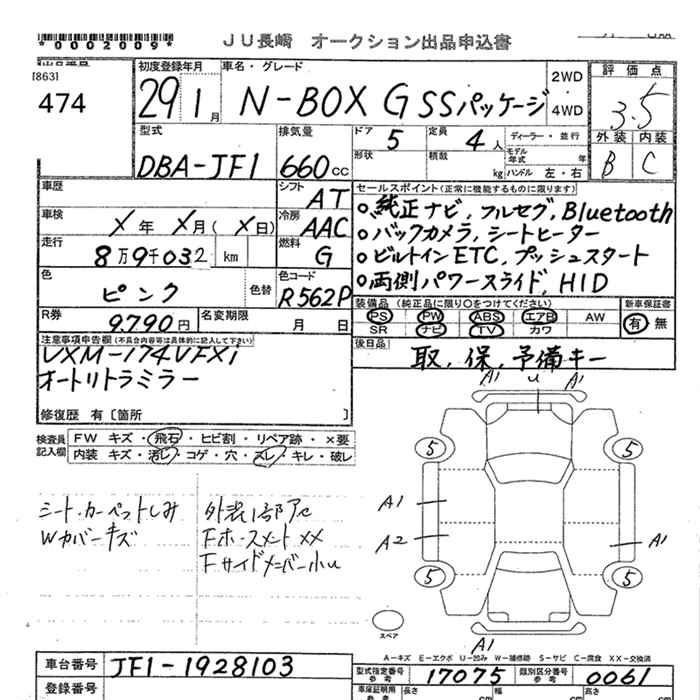 *0002009*
JU長崎 オークション出品申込書
[863]
474
初度登録年月
29 1月
車名・グレード
N-BOX G SSパッケージ
2WD
・
4WD
評価点
3.5
外装 内装
B C
型式
DBA-JF1
排気量
660cc
ドア 5
形状
定員 4人
積載 kg
ディーラー・並行
モデル年式 年
ハンドル 左・右
車歴
シフト AT
車検 X年 X月(X日)
冷房 AAC
走行 8万9千032 km
燃料 G
色 ピンク
色替
色コード R562P
R券 9.790円
名変期限 月 日
セールスポイント(正常に機能するものに限ります)
○純正ナビ, フルセグ, Bluetooth
○バックカメラ, シートヒーター
○ビルトインETC, プッシュスタート
○両側パワースライド, HID
装備品 (純正品に限り○をつけてください)
PS PW ABS エアB AW
SR ナビ TV カワ
新車保証書
有 無
後日品
取, 保, 予備キー
注意事項申告欄(不具合内容等は具体的に記入して下さい)
VXM-174VFXi
オートリトラミラー
修復歴 有〔箇所 〕
検査員記入欄
FW キズ・飛石・ヒビ割・リペア跡・×要
内装 キズ・汚レ・コゲ・穴・スレ・キレ・破レ
シート・カーペットしみ
Wカバーキズ
外装1部アセ
Fホースメント XX
Fサイドメンバー小U
A1 U A1
5 5
A1
A2 A1
5 5
スペア
A1
A-キズ E-エクボ U-凹み W-補修跡 S-サビ C-腐食 XX-交換済
車台番号 JF1-1928103
登録番号
型式指定番号 参考 17075
類別区分番号 参考 0061
車庫証明用 参考
長さ cm
幅 cm
高さ cm